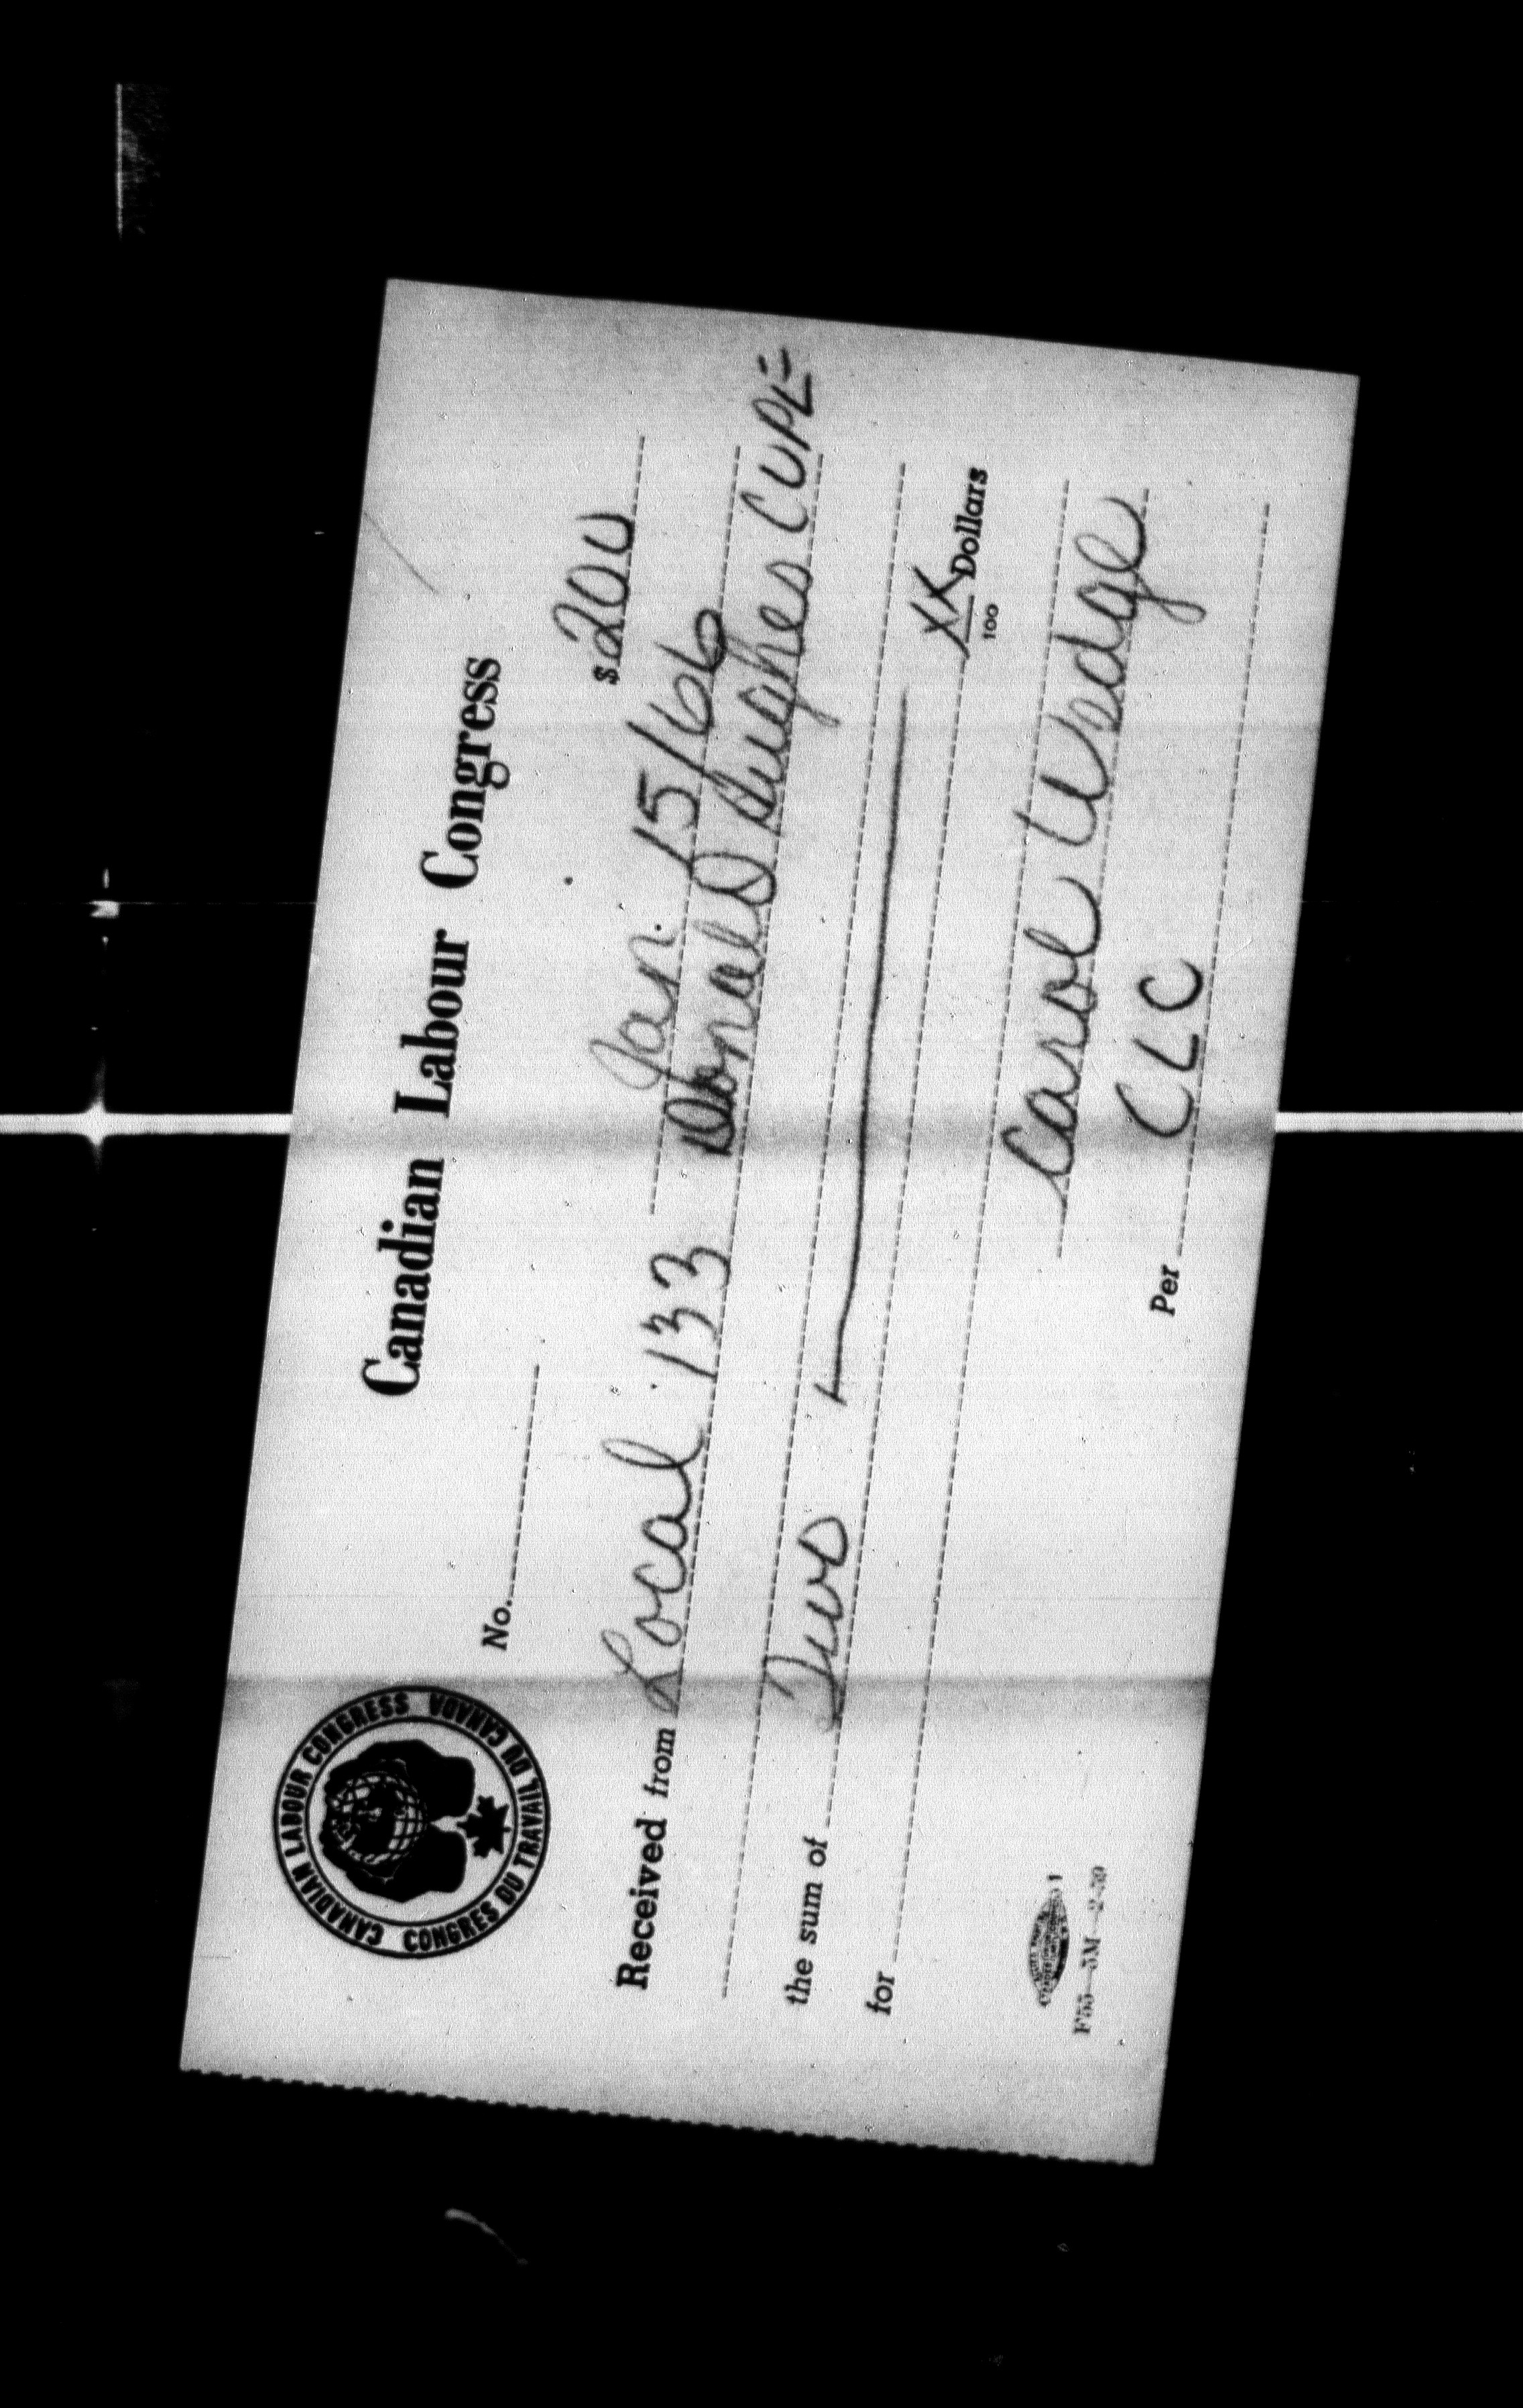 Canadian Labour Congress
CANADIAN LABOUR CONGRESS
CONGRES DU TRAVAIL DU CANADA
No.
$ 200
Jan. 15/66
Received from Local 133 Donald Hughes CUPE
the sum of Two
XX/100 Dollars
for
Carol Wedge
Per CLC
F55—5M—2-59